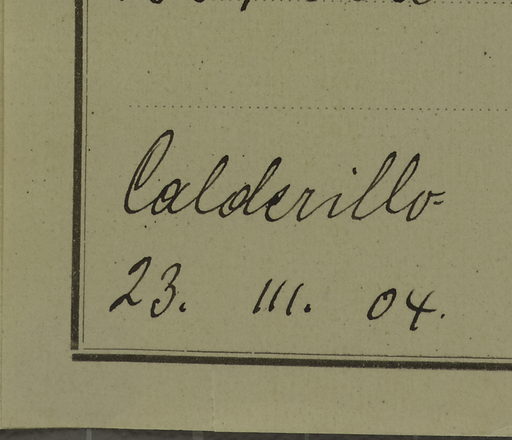 Calderillo-
23. III. 04.